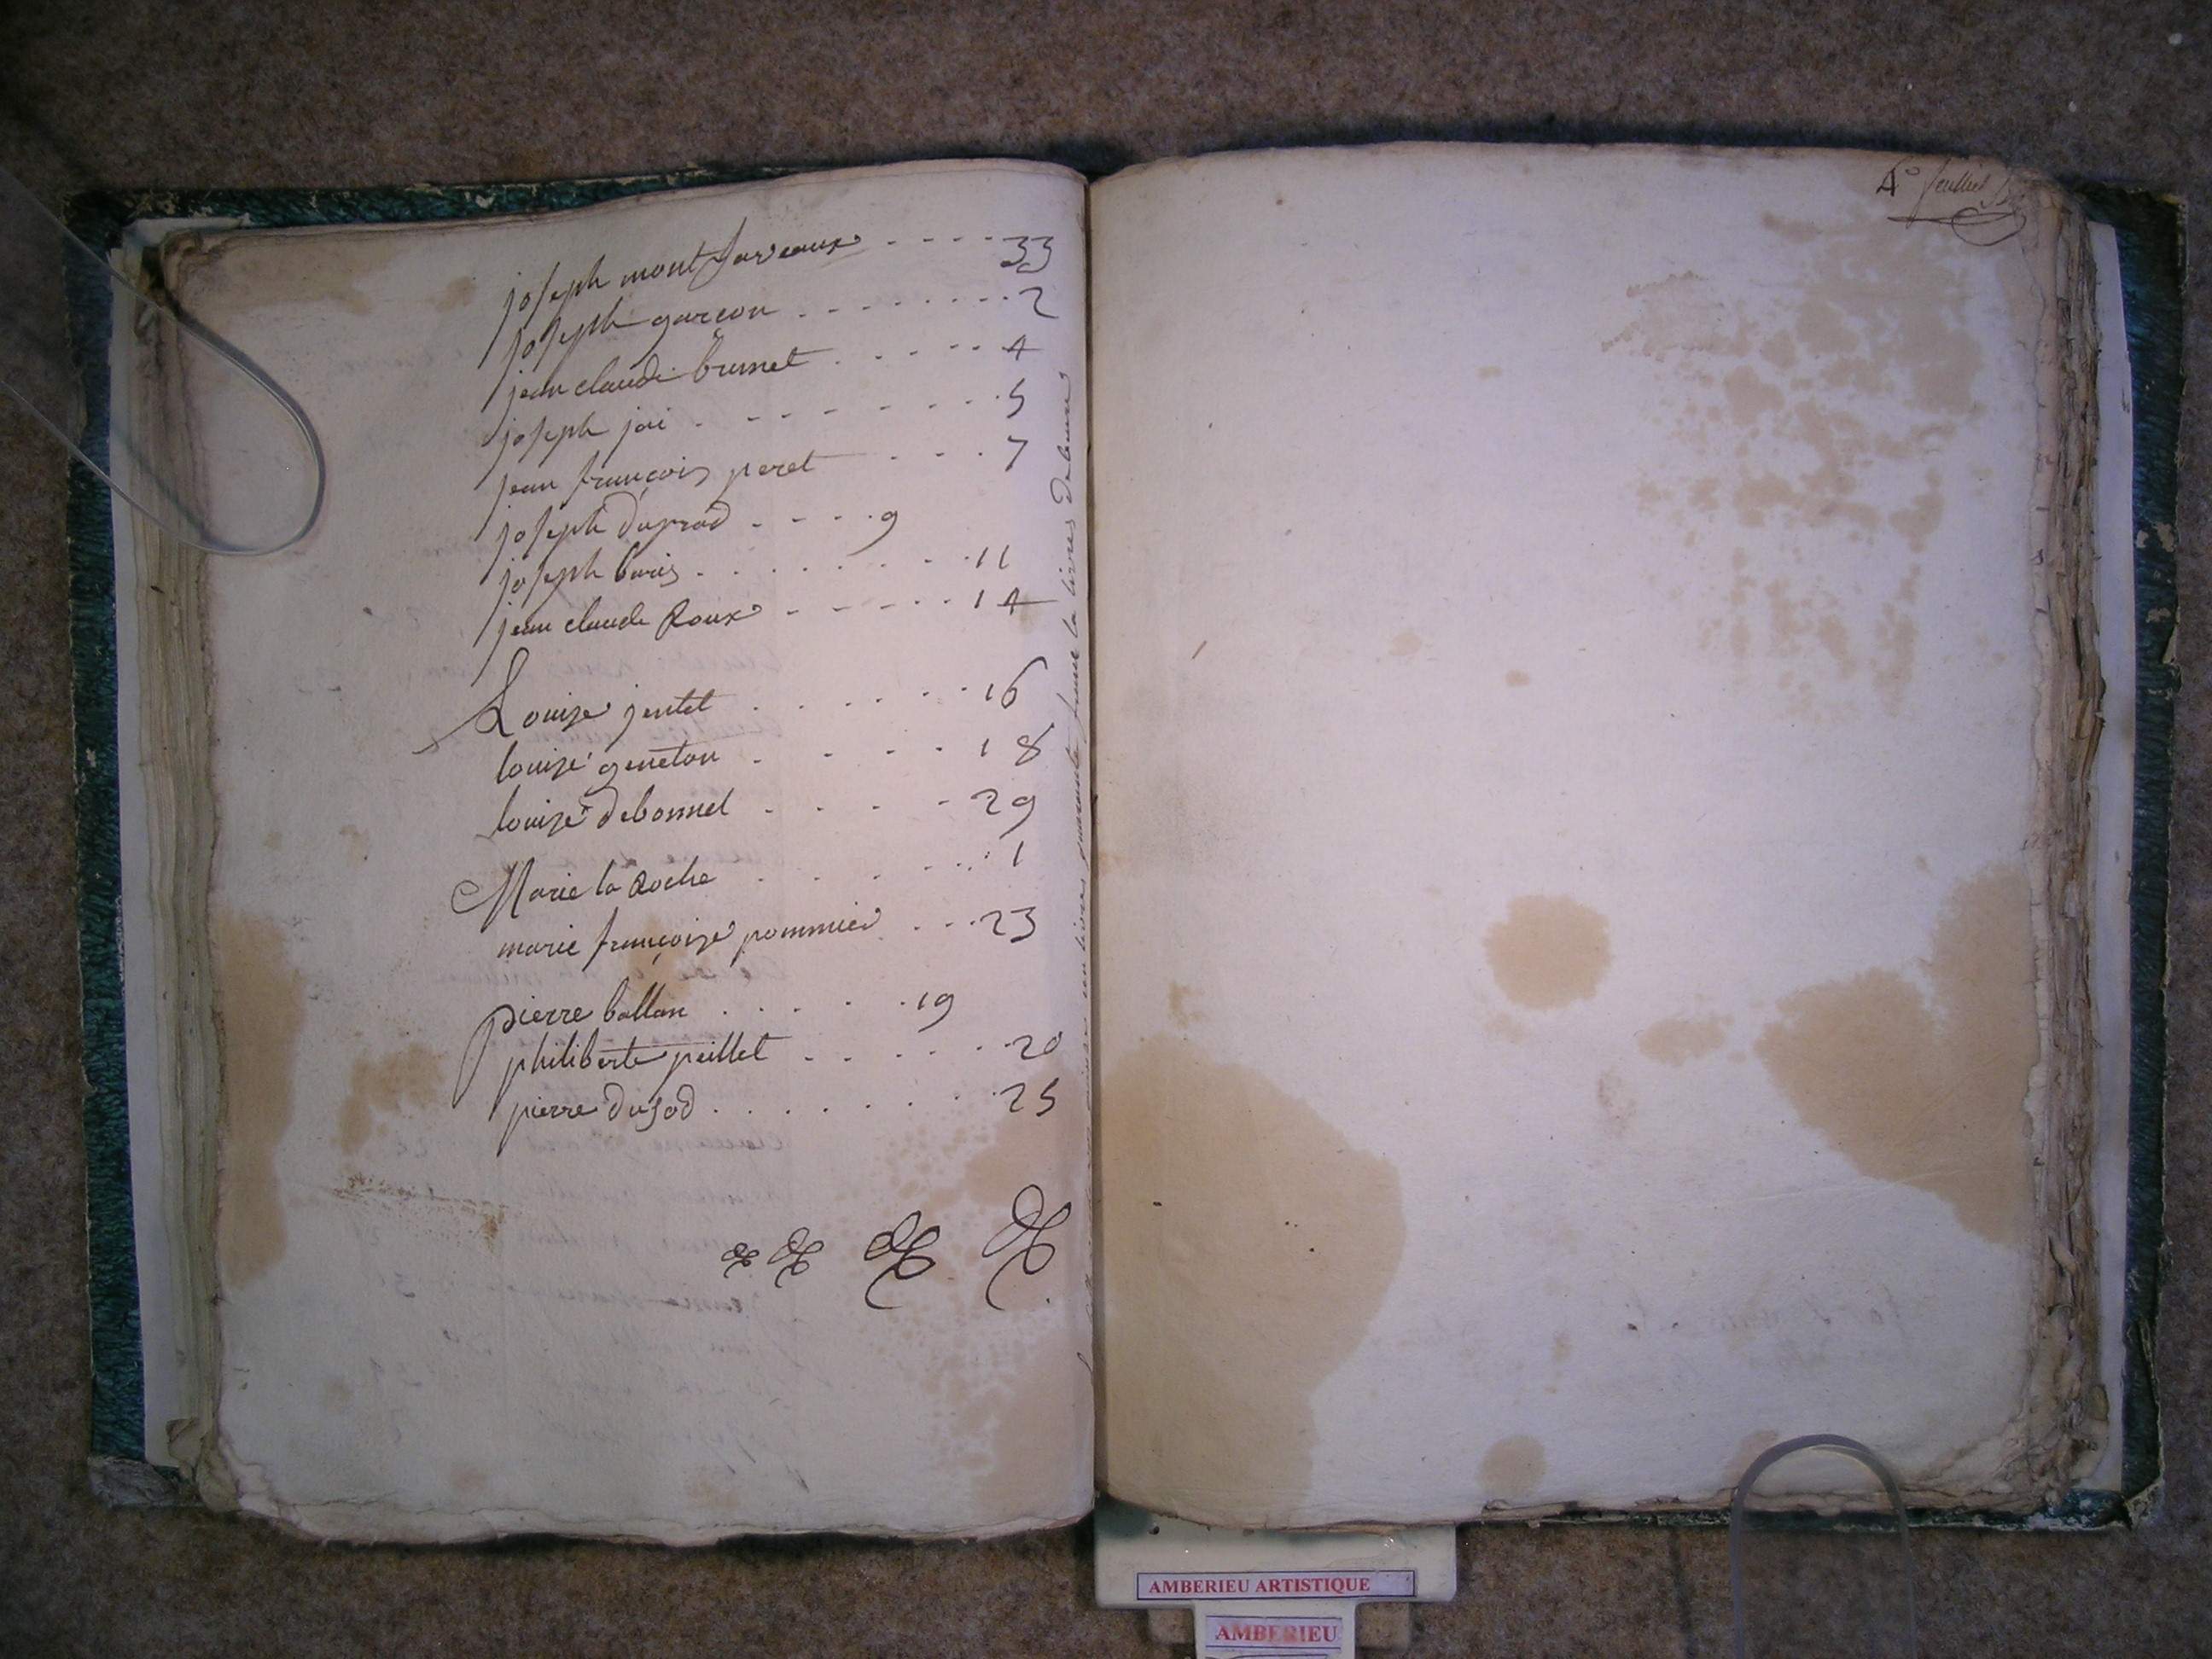 joseph montfaveaux - - - - 33
joseph garcon - - - - - - - - 2
jean claude brunet - - - - - 4
joseph joi - - - - - - - - 5
jean françois peret - - - 7
joseph duprad - - - - 9
joseph boris - - - - - - - 11
jean claude Roux - - - - - 14
Louise jentet . . . . . . 16
louise geneton . . . . 18
louise debonnel . . . . 29
Marie la Roche . . . . . . 1
marie françoise pommier . . . 23
pierre ballan . . . . . 19
philiberte peillet . . . . . 20
pierre dujod . . . . . . . 25
4e feuillet
AMBERIEU ARTISTIQUE
AMBERIEU